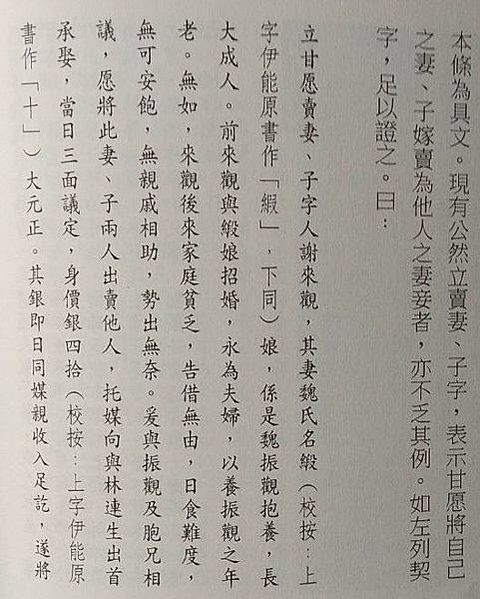 本條為具文。現有公然立賣妻、子字，表示甘愿將自己
之妻、子嫁賣為他人之妻妾者，亦不乏其例。如左列契
字，足以證之。曰：
立甘愿賣妻、子字人謝來觀，其妻魏氏名緞（校按：上
字伊能原書作「緞」，下同）娘，係是魏振觀抱養，長
大成人。前來觀與緞娘招婚，永為夫婦，以養振觀之年
老。無如，來觀後來家庭貧乏，告借無由，日食難度，
無可安飽，無親戚相助，勢出無奈。爰與振觀及胞兄相
議，愿將此妻、子兩人出賣他人，托媒向與林連生出首
承娶，當日三面議定，身價銀四拾（校按：上字伊能原
書作「十」）大元正。其銀即日同媒親收入足訖，遂將